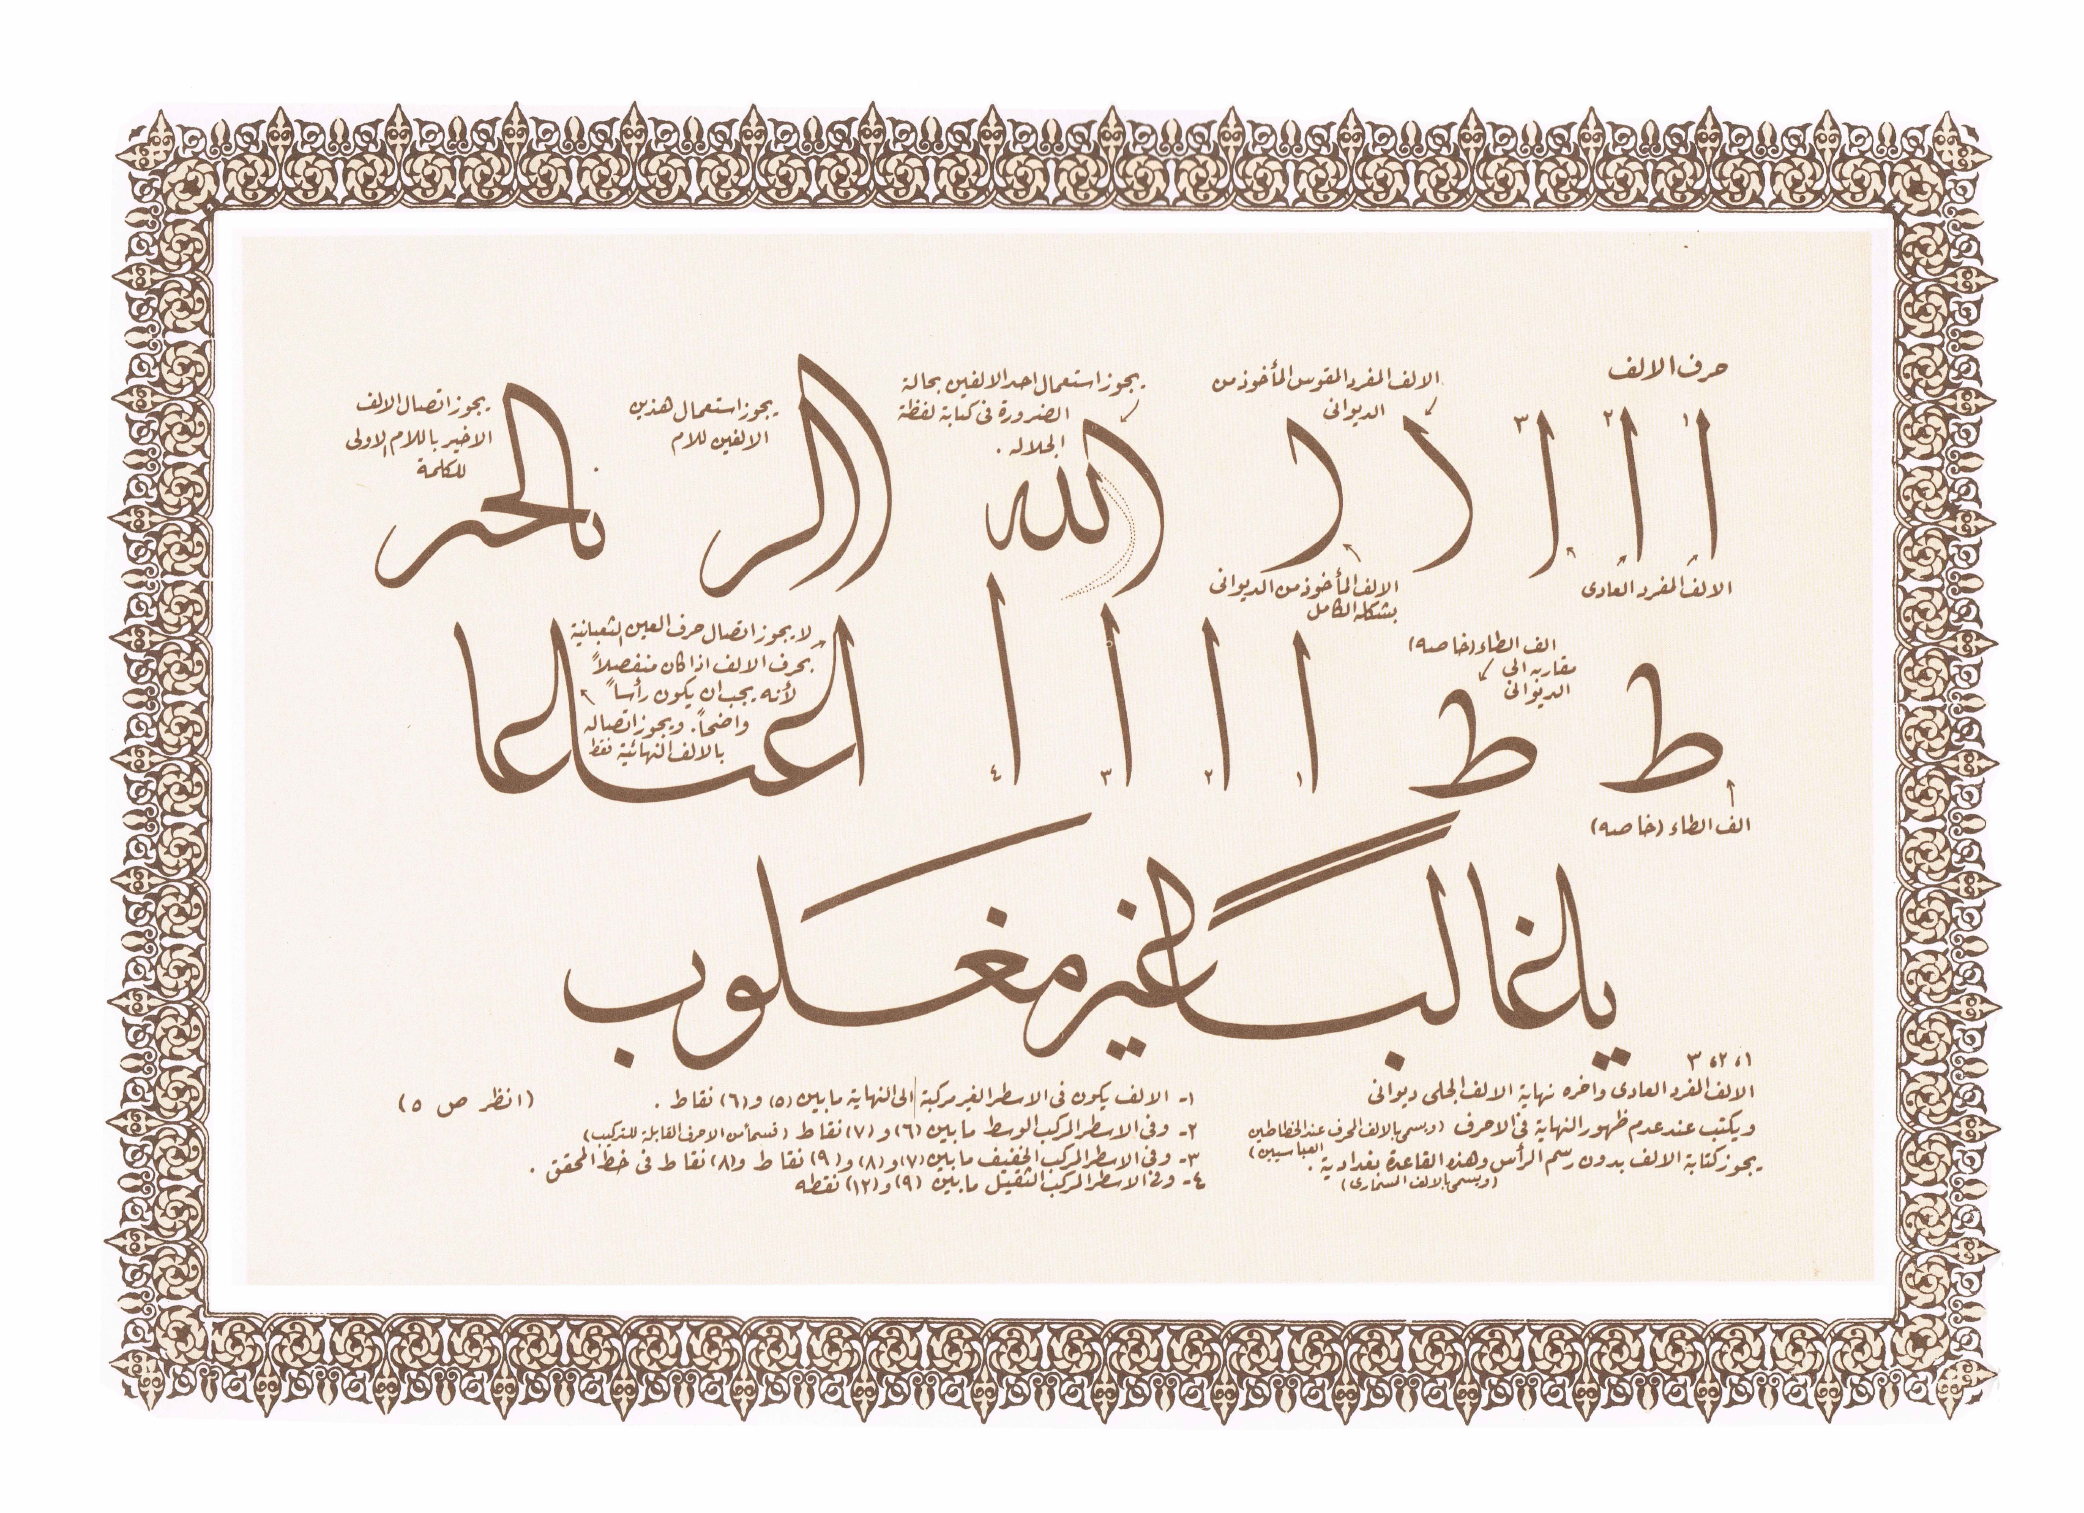 حرف الالف
١ ا ٢ ا ٣ ا
الالف المفرد العادى
الالف المفرد المقوس المأخوذ من
الديوانى
الالف المأخوذ من الديوانى
بشكله الكامل
يجوز استعمال احد الالفين بحالة
الضرورة فى كتابة لفظة
الجلاله .
الله
يجوز استعمال هذين
الالفين للام
يجوز اتصال الالف
الاخير باللام الاولى
للكلمة
ط ط
الف الطاء (خاصه)
الف الطاء (خاصه)
مقاربه الى
الديوانى
ا ١ ا ٢ ا ٣ ا ٤
لا يجوز اتصال حرف العين الثعبانية
بحرف الالف اذا كان منفصلاً
لأنه يجب ان يكون رأساً
واضحاً. ويجوز اتصاله
بالالف النهائية فقط
يا غالبا غير مغلوب
١ ، ٢ ، ٣
الالف المفرد العادى وآخره نهاية الالف الجلى ديوانى
ويكتب عند عدم ظهور النهاية فى الاحرف (ويسمى بالالف المحرف عند الخطاطين
العباسيين)
يجوز كتابة الالف بدون رسم الرأس وهذه القاعدة بغدادية .
١- الالف يكون فى الاسطر الغير مركبة الى النهاية ما بين (٥) و (٦) نقاط .
٢- وفى الاسطر المركب الوسط ما بين (٦) و (٧) نقاط (قسماً من الاحرف القابلة للتركيب)
٣- وفى الاسطر المركب الخفيف ما بين (٧) و (٨) و (٩) نقاط و (٨) نقاط فى خط المحقق .
٤- وفى الاسطر المركب الثقيل ما بين (٩) و (١٢) نقطه
(انظر ص ٥)